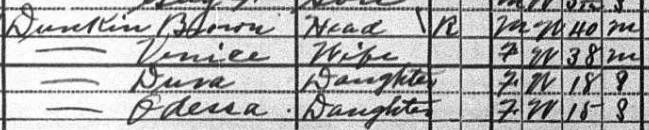 Dunkin Brown Head R M W 40 M
— Venice Wife F W 38 M
— Dura Daughter F W 18 S
— Odessa Daughter F W 15 S